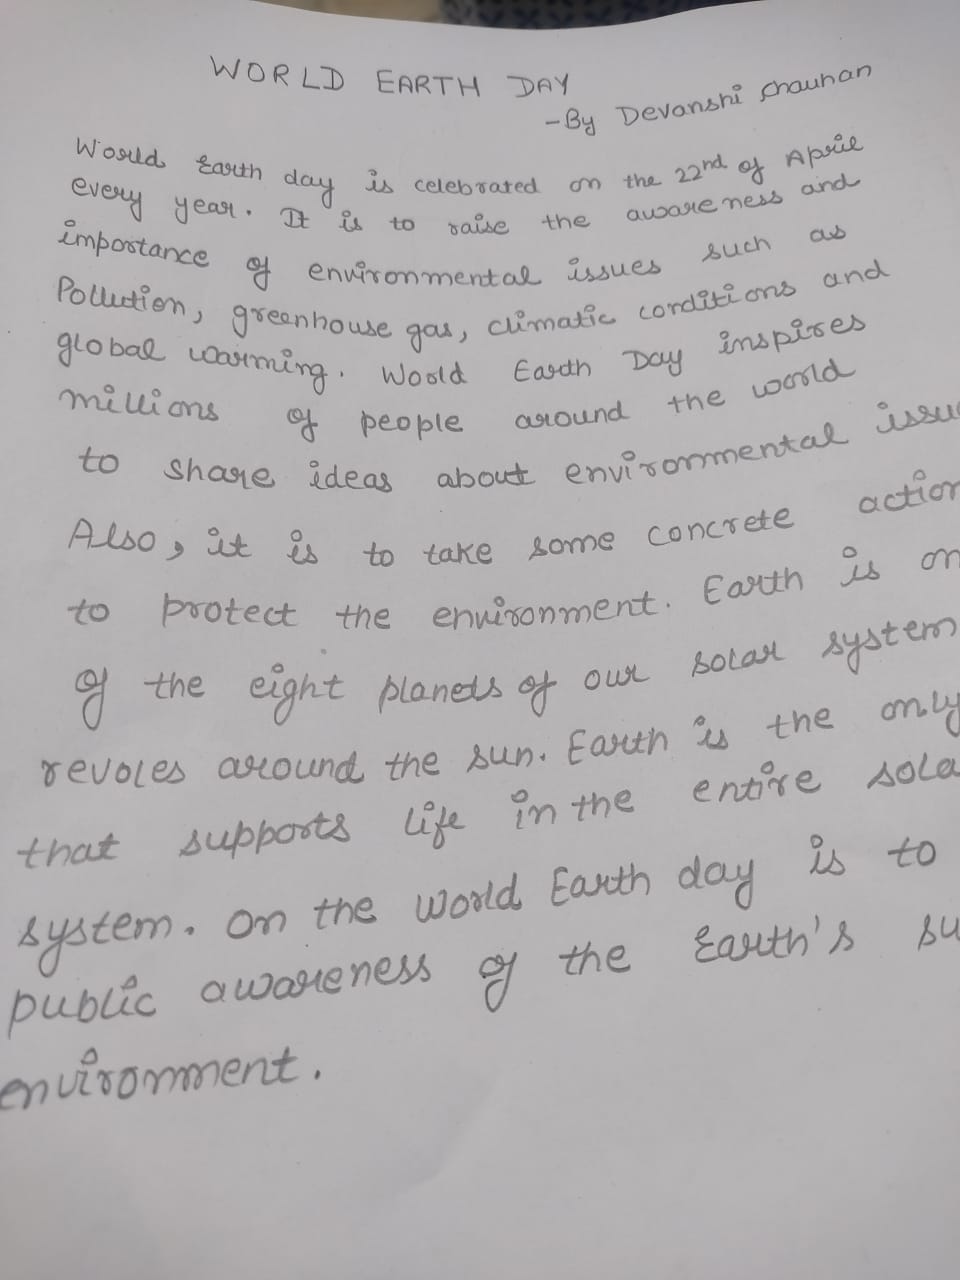 WORLD EARTH DAY
-By Devanshi Chauhan
World Earth day is celebrated on the 22nd of April
every year. It is to raise the awareness and
importance of environmental issues such as
Pollution, greenhouse gas, climatic conditions and
global warming. World Earth Day inspires
millions of people around the world
to share ideas about environmental issu
Also, it is to take some concrete action
to protect the environment. Earth is on
of the eight planets of our solar system
revoles around the sun. Earth is the only
that supports life in the entire sola
system. On the world Earth day is to
public awareness of the Earth's su
environment.